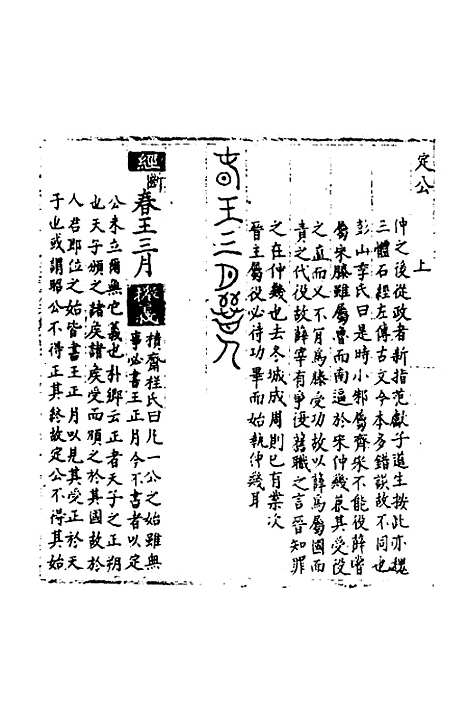 定公
上
仲之後從政者新指范獻子道生按此亦魏
三體石經左傳古文今本多錯誤故不同也
彭山季氏曰是時小邾屬齊來不能役薛嘗
屬宋滕雖屬魯而南逼於宋仲幾喪其受役
之直而又不肯為滕受功故以薛為屬國而
責之代役故薛宰有爭復舊職之言晉知罪
之在仲幾也去冬城成周則已有業次
晉主屬役必待功畢而始執仲幾耳
王三月
經
斷
春王三月
積齋程氏曰凡一公之始雖無
事必書王正月今不書者以定
公未立爾無它義也朴鄉云正者天子之正朔
也天子頒之諸侯諸侯受而頒之於其國故於
人君即位之始皆書王正月以見其受正於天
子也或謂昭公不得正其終故定公不得其始